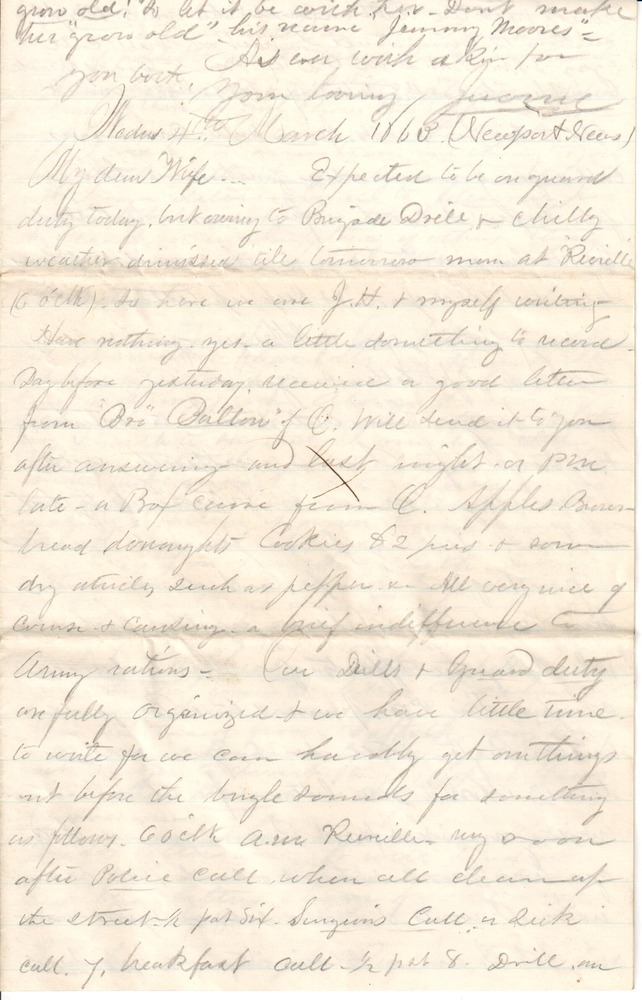 grow old." So let it be with her - Don't make
her "grow old" his name "Jimmy Moores" =
As ever with a kiss for
you both. Your loving
Wednes 4th March 1863. (Newport News)
My dear Wife... Expected to be on guard
duty today, but owing to Brigade Drill & chilly
weather dismissed till tomorrow morn at Reveille
(6 o'clk). So here we are J.H. & myself writing
Have nothing. yes. a little something to record.
Day before yesterday, received a good letter
from "Bro" of C. Will send it to you
after answering - and last night - or P.M.
late - a Box came from C. Apples Brown-
bread doughnuts Cookies & 2 pies & some
dry articles such as pepper &c - All very nice of
course & causing a brief indifference to
Army rations = Our Drills & Guard duty
are fully organized & we have little time
to write for we can hardly get our things
out before the bugle sounds for something
as follows. 6 o'clk a.m. Reveille - very soon
after Police call, when all clean up
the street - ½ past six. Surgeons Call or Sick
call. 7, breakfast call - ½ past 8. Drill, an